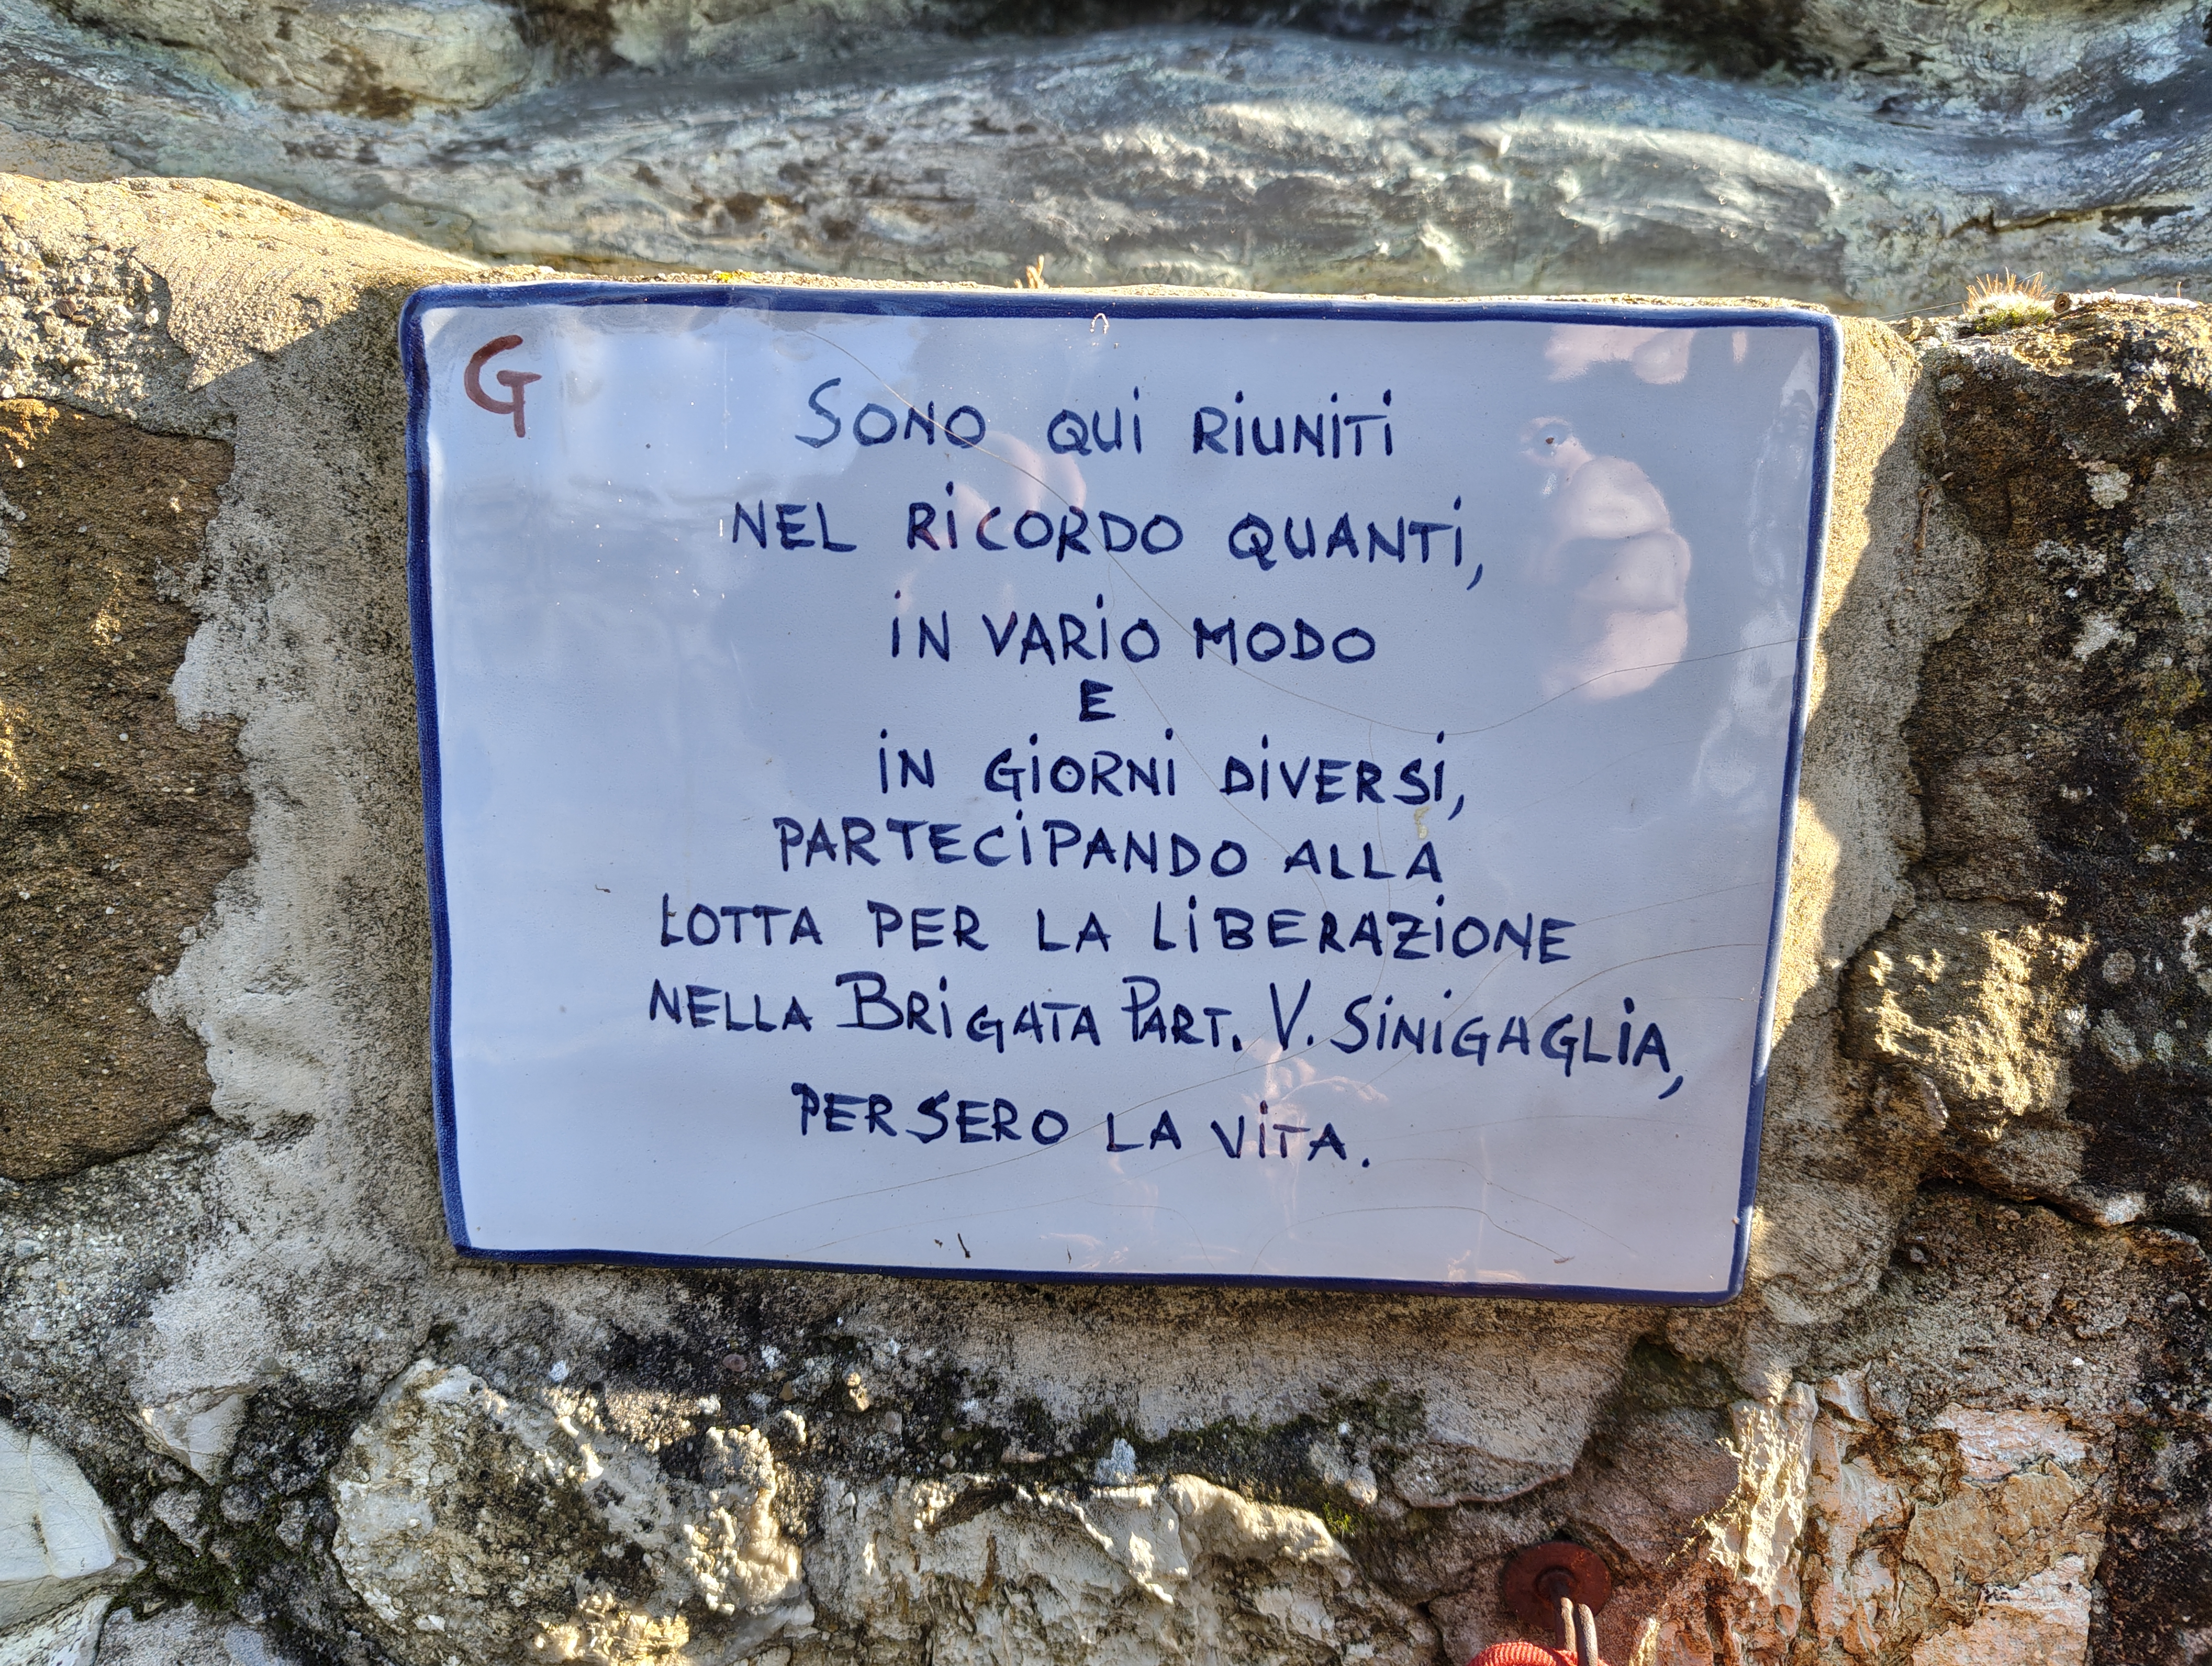 G
SONO QUI RIUNITI
NEL RICORDO QUANTI,
IN VARIO MODO
E
IN GIORNI DIVERSI,
PARTECIPANDO ALLA
LOTTA PER LA LIBERAZIONE
NELLA BRIGATA PART. V. SINIGAGLIA,
PERSERO LA VITA.